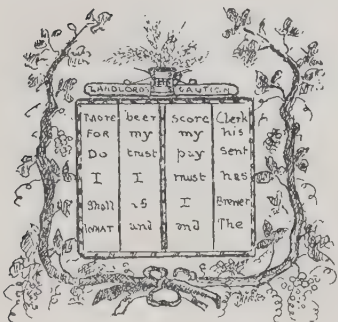 LANDLORD'S CAUTION
More beer score Clerk
FOR my my his
Do trust pay sent
I I must has
Shall is I Brewer
WHAT and and The